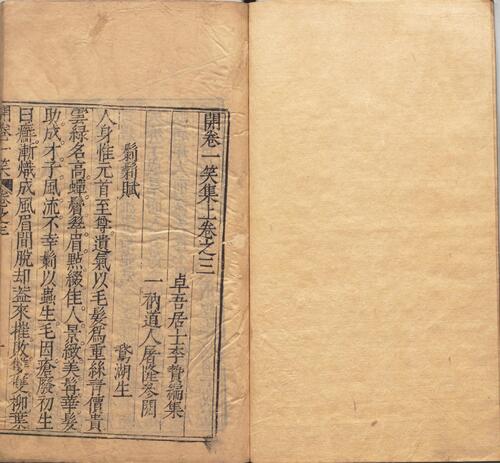 開卷一笑集上卷之三
卓吾居士李贄編集
一衲道人屠隆參閱
鬎鬁賦
鵞湖生
人身惟元首至尊遺氣以毛髮爲重絲青價貴
雲綠名高蟬鬢翠眉點綴佳人景緻美髯華髮
助成才子風流不幸以蟲生毛因瘡發初生
曰癬漸熾成風眉間脫却盜來摧敗雙雙柳葉
開卷一笑 卷之三 一